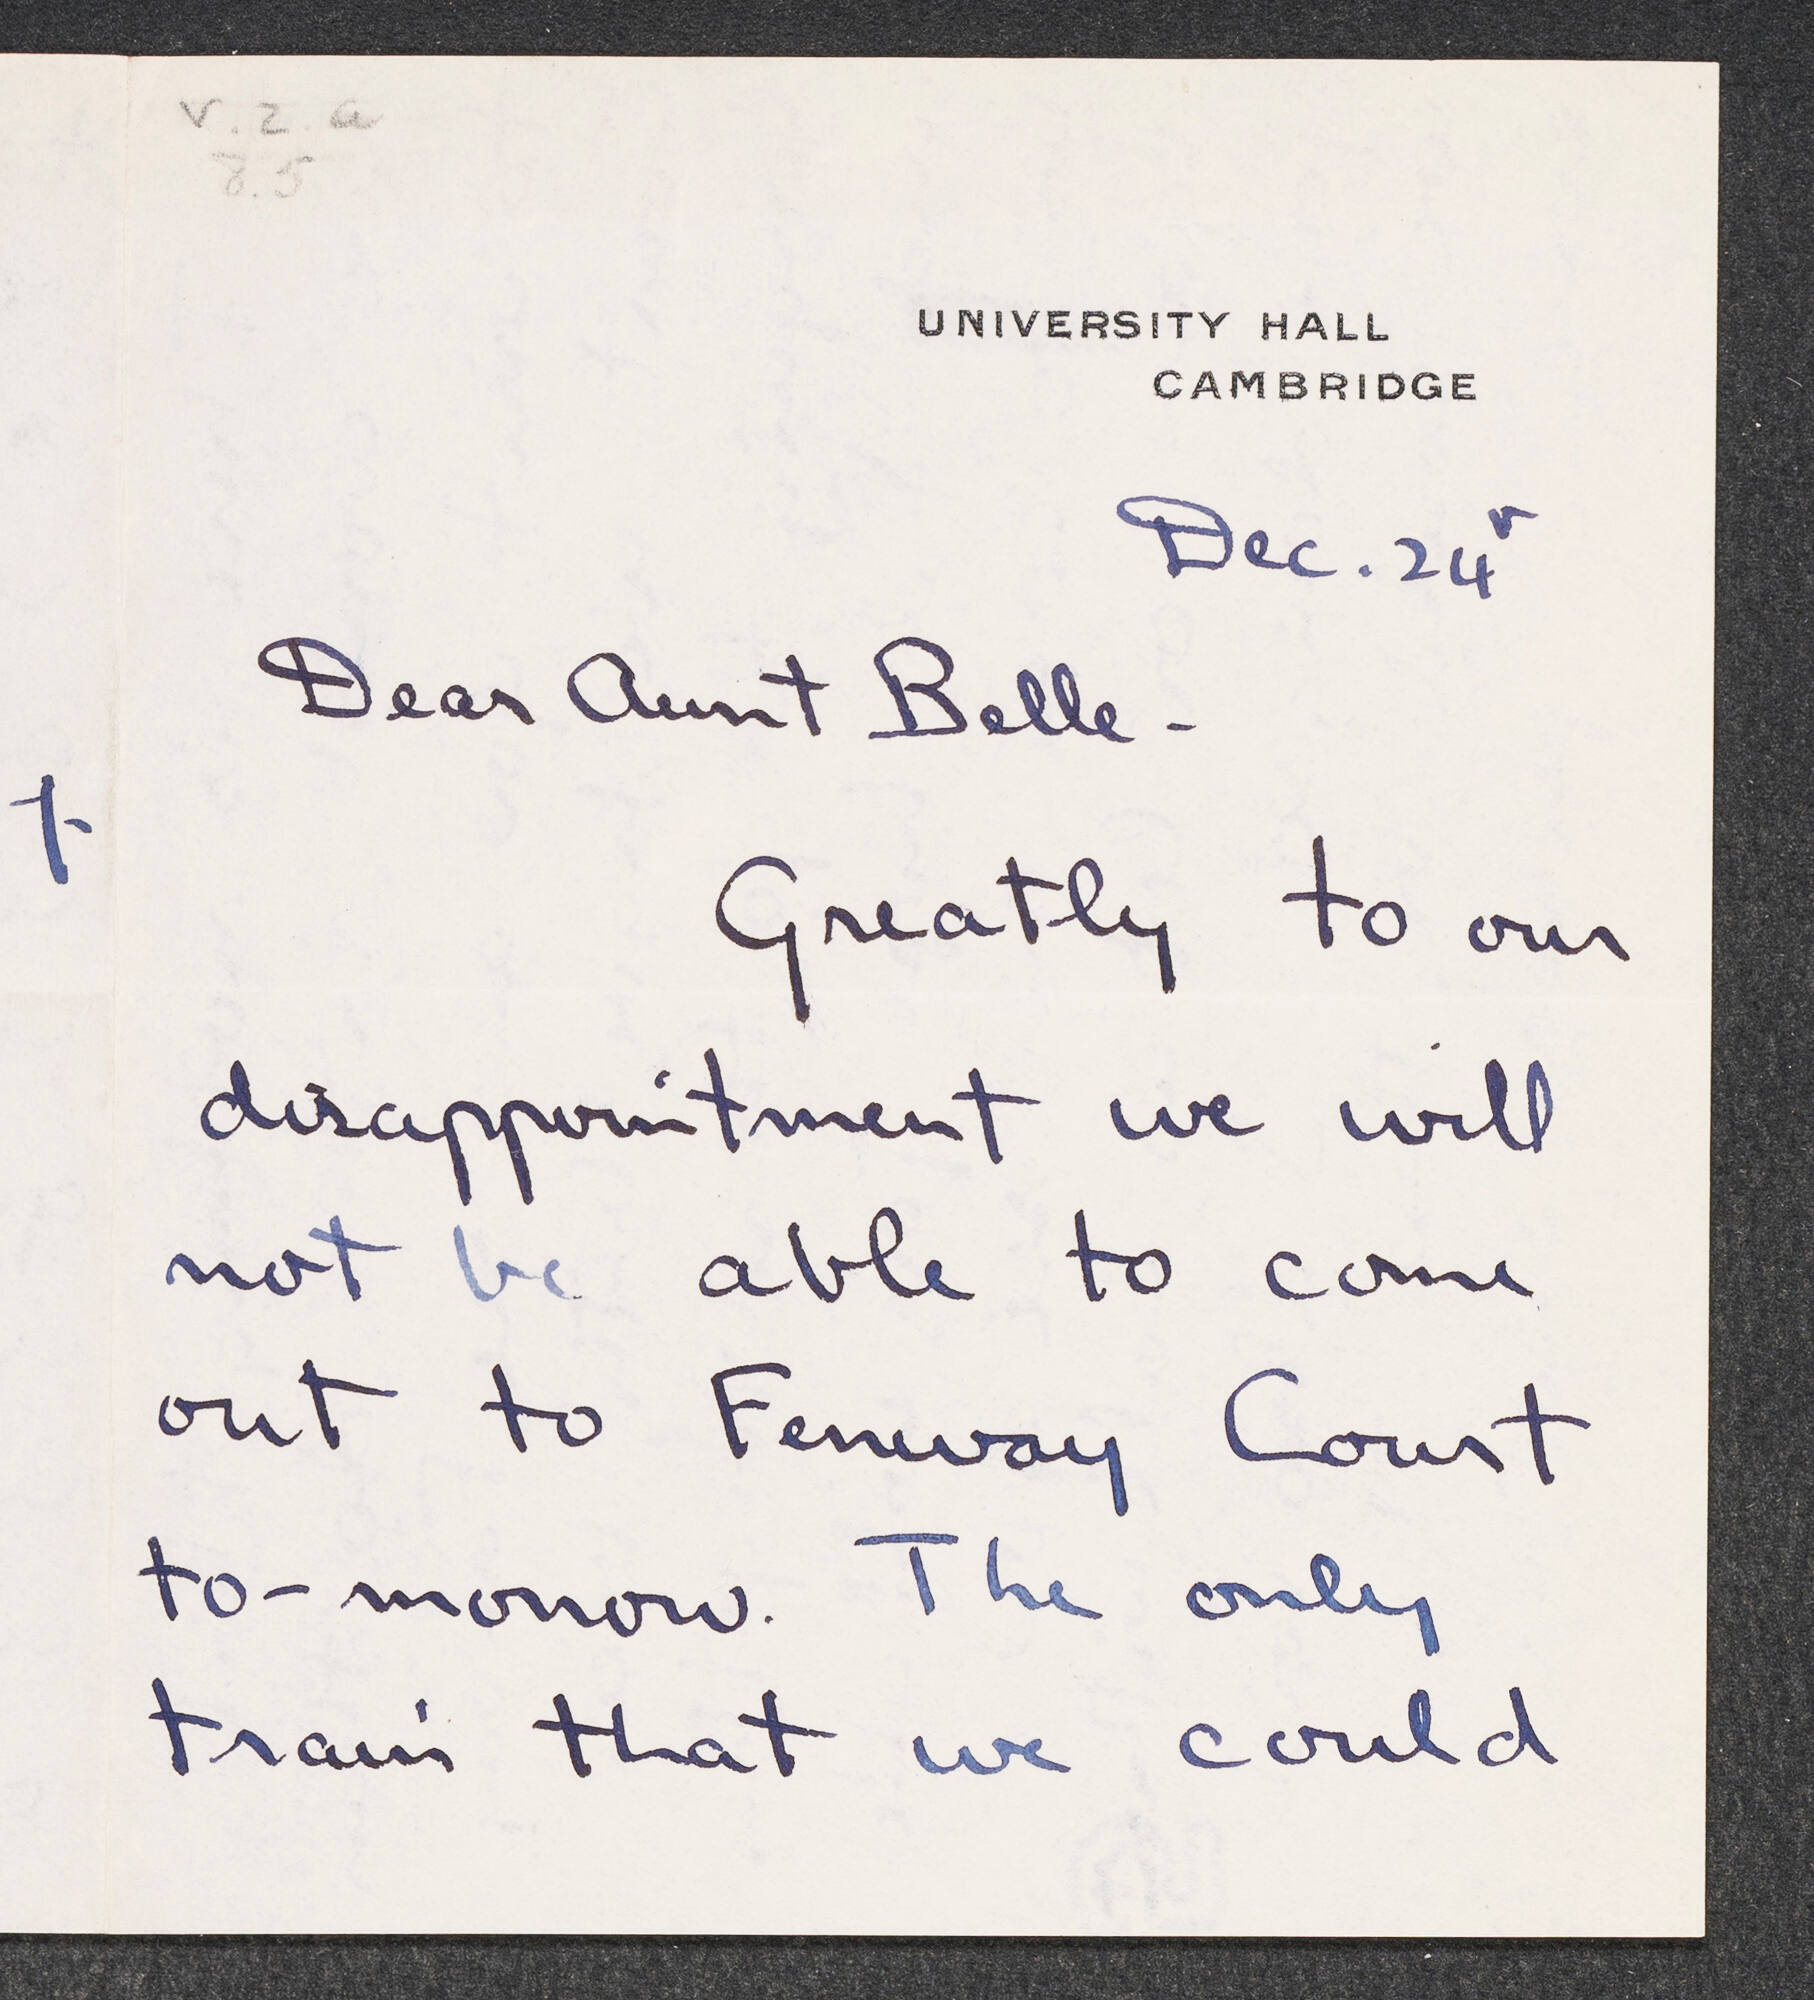 v. 2. a
8.5
UNIVERSITY HALL
CAMBRIDGE
Dec. 24
Dear Aunt Belle -
Greatly to our
disappointment we will
not be able to come
out to Fenway Court
to-morrow. The only
train that we could